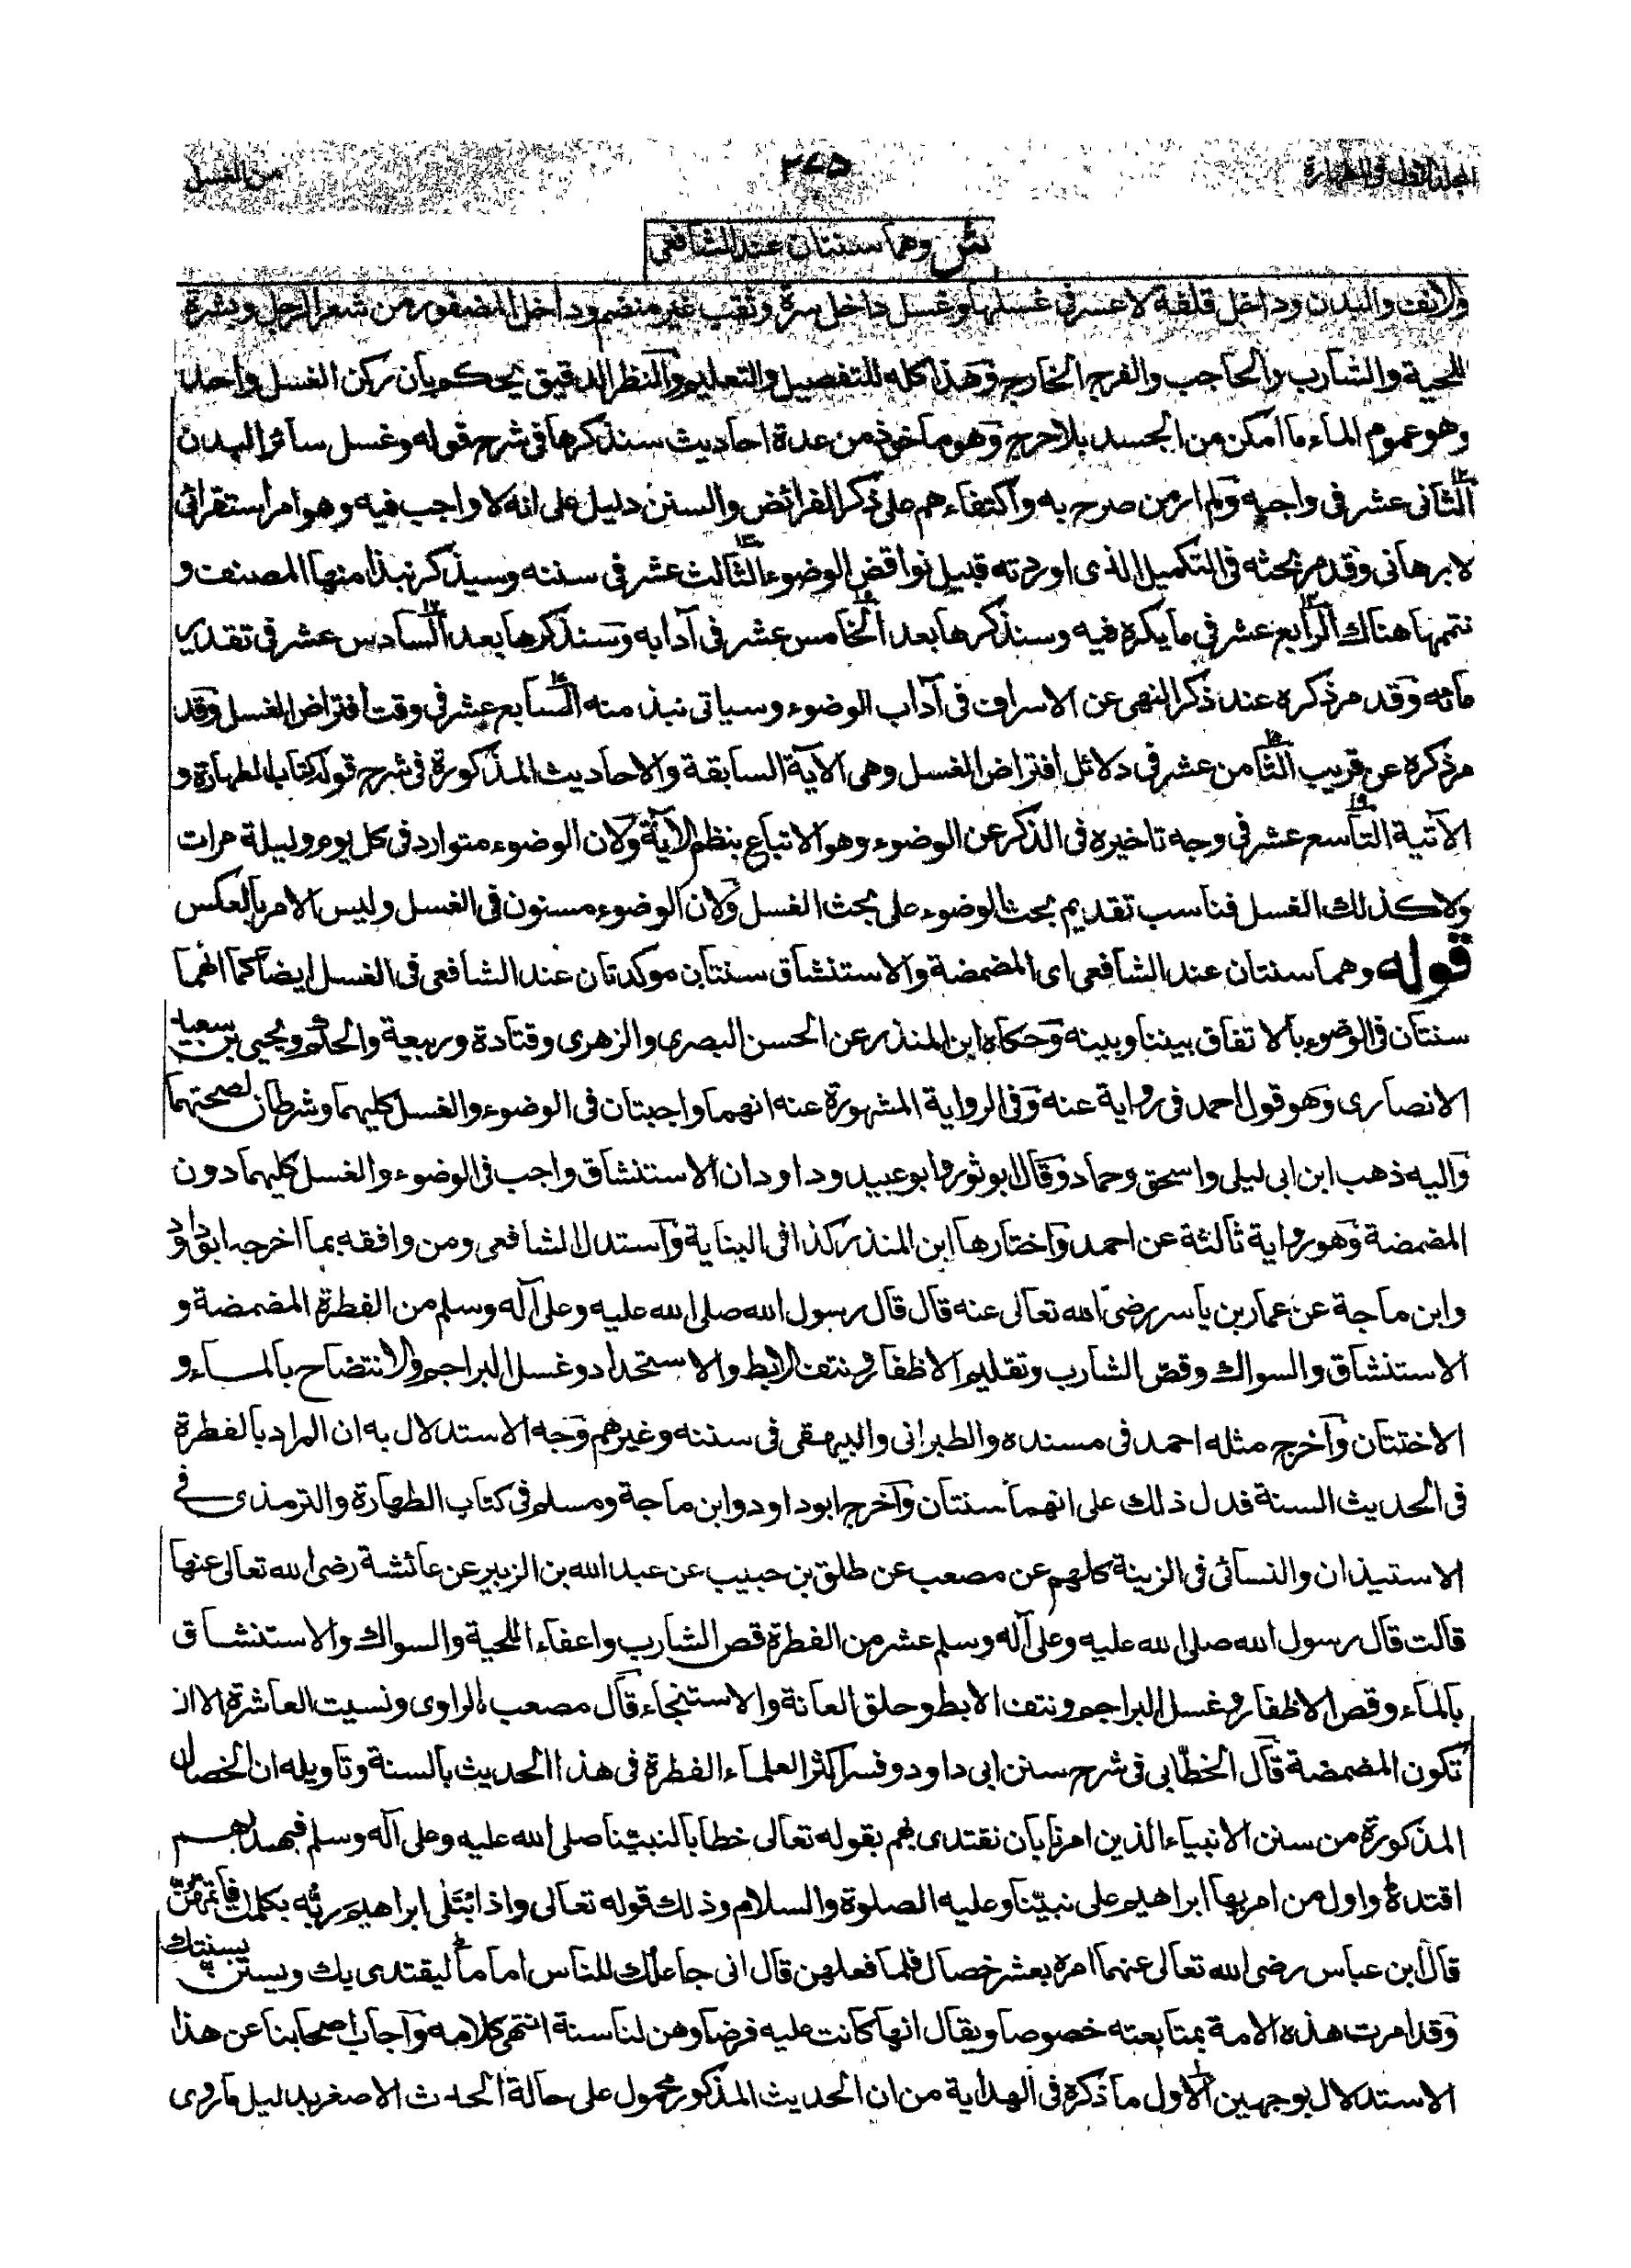 المجلد الاول فى الطهارة ٢٧٥ من الغسل
ش وهما سنتان عند الشافعى
والانف والبدن وداخل قلفة لا عسر فى غسلها وغسل داخل سرة وثقب غير منضم وداخل المضفور من شعر الرجل وبشرة
اللحية والشارب والحاجب والفرج الخارج وهذا كله للتفصيل والتعليم والنظر الدقيق يحكم بان ركن الغسل واحد
وهو عموم الماء ما امكن من الجسد بلا حرج وهو ماخوذ من عدة احاديث سنذكرها فى شرح قوله وغسل سائر البدن
الثانى عشر فى واجبه ولم ار من صرح به واكتفاءهم على ذكر الفرائض والسنن دليل على انه لا واجب فيه وهو امر استقرائى
لا برهانى وقد مر بحثه فى التكميل الذى اوردته قبيل نواقض الوضوء الثالث عشر فى سننه وسيذكر نبذا منها المصنف و
نتمها هناك الرابع عشر فى ما يكره فيه وسنذكرها بعد الخامس عشر فى آدابه وسنذكرها بعد السادس عشر فى تقدير
مائه وقد مر ذكره عند ذكر النهى عن الاسراف فى آداب الوضوء وسياتى نبذ منه السابع عشر فى وقت افتراض الغسل وقد
مر ذكره عن قريب الثامن عشر فى دلائل افتراض الغسل وهى الآية السابقة والاحاديث المذكورة فى شرح قوله كتاب الطهارة و
الآتية التاسع عشر فى وجه تاخيره فى الذكر عن الوضوء وهو الاتباع بنظم الآية ولان الوضوء متوارد فى كل يوم وليلة مرات
ولا كذلك الغسل فناسب تقديم بحث الوضوء على بحث الغسل ولان الوضوء مسنون فى الغسل وليس الامر بالعكس
قوله وهما سنتان عند الشافعى اى المضمضة والاستنشاق سنتان موكدتان عند الشافعى فى الغسل ايضا كما انهما
سنتان فى الوضوء بالاتفاق بيننا وبينه وحكاه ابن المنذر عن الحسن البصرى والزهرى وقتادة وربيعة والحكم ويحيى بن سعيد
الانصارى وهو قول احمد فى رواية عنه وفى الرواية المشهورة عنه انهما واجبتان فى الوضوء والغسل كليهما وشرطان لصحتهما
واليه ذهب ابن ابى ليلى واسحق وحماد وقال ابو ثور وابو عبيد وداود ان الاستنشاق واجب فى الوضوء والغسل كليهما دون
المضمضة وهو رواية ثالثة عن احمد واختارها ابن المنذر كذا فى البناية واستدل الشافعى ومن وافقه بما اخرجه ابو داود
وابن ماجة عن عمار بن ياسر رضى الله تعالى عنه قال قال رسول الله صلى الله عليه وعلى آله وسلم من الفطرة المضمضة و
الاستنشاق والسواك وقص الشارب وتقليم الاظفار ونتف الابط والاستحداد وغسل البراجم والانتضاح بالماء و
الاختتان وآخرج مثله احمد فى مسنده والطبرانى والبيهقى فى سننه وغيرهم وجه الاستدلال به ان المراد بالفطرة
فى الحديث السنة فدل ذلك على انهما سنتان وآخرج ابو داود وابن ماجة ومسلم فى كتاب الطهارة والترمذى فى
الاستيذان والنسائى فى الزينة كلهم عن مصعب عن طلق بن حبيب عن عبد الله بن الزبير عن عائشة رضى الله تعالى عنها
قالت قال رسول الله صلى الله عليه وعلى آله وسلم عشر من الفطرة قص الشارب واعفاء اللحية والسواك والاستنشاق
بالماء وقص الاظفار وغسل البراجم ونتف الابط وحلق العانة والاستنجاء قال مصعب الراوى ونسيت العاشرة الا ان
تكون المضمضة قال الخطّابى فى شرح سنن ابى داود وفسر اكثر العلماء الفطرة فى هذا الحديث بالسنة وتاويله ان الخصال
المذكورة من سنن الانبياء الذين امرنا بان نقتدى بهم بقوله تعالى خطابا لنبيّنا صلى الله عليه وعلى آله وسلم فبهداهم
اقتده واول من امر بها ابراهيم على نبيّنا وعليه الصلوة والسلام وذلك قوله تعالى واذ ابتلى ابراهيم ربّه بكلمت فاتمهنّ
قال ابن عباس رضى الله تعالى عنهما امره بعشر خصال فلما فعلهن قال انى جاعلك للناس اماما ليقتدى بك ويستن بسنتك
وقد امرت هذه الامة بمتابعته خصوصا ويقال انها كانت عليه فرضا وهن لنا سنة انتهى كلامه وآجاب اصحابنا عن هذا
الاستدلال بوجهين الاول ما ذكره فى الهداية من ان الحديث المذكور محمول على حالة الحدث الاصغر بدليل ما روى